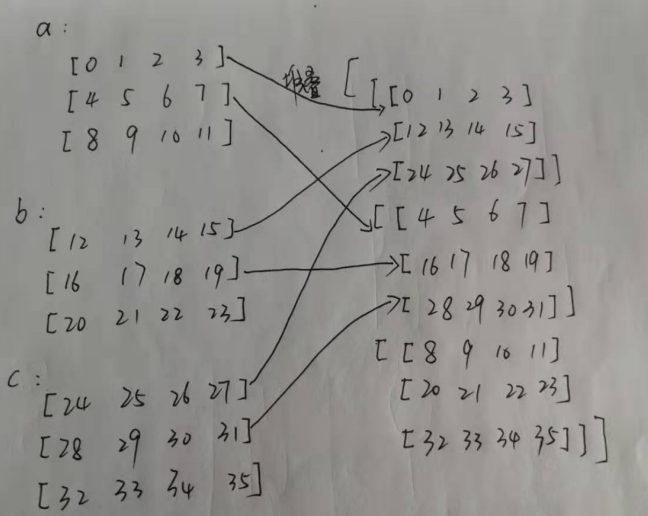 a:
[0 1 2 3]
[4 5 6 7]
[8 9 10 11]
b:
[12 13 14 15]
[16 17 18 19]
[20 21 22 23]
c:
[24 25 26 27]
[28 29 30 31]
[32 33 34 35]
堆叠
[[[0 1 2 3]
[12 13 14 15]
[24 25 26 27]]
[[4 5 6 7]
[16 17 18 19]
[28 29 30 31]]
[[8 9 10 11]
[20 21 22 23]
[32 33 34 35]]]